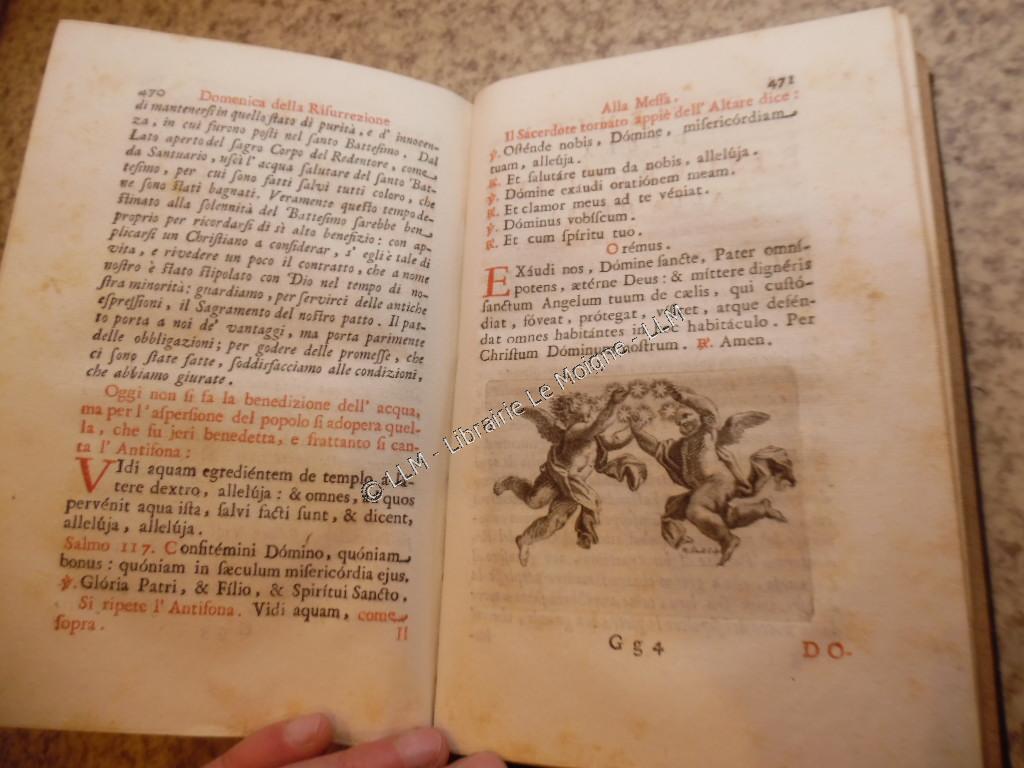 470 Domenica della Risurrezione
di mantenersi in quello stato di purità, e d' innocen-
za, in cui furono posti nel santo Battesimo. Dal
Lato aperto del sagro Corpo del Redentore, come
da Santuario, uscì l' acqua salutare del santo Bat-
tesimo, per cui sono fatti salvi tutti coloro, che
ne sono stati bagnati. Veramente questo tempo de-
stinato alla solennità del Battesimo sarebbe ben
proprio per ricordarsi di sì alto benefizio: con ap-
plicarsi un Christiano a considerar, s' egli è tale di
vita, e rivedere un poco il contratto, che a nome
nostro è stato stipolato con Dio nel tempo di no-
stra minorità: guardiamo, per servirci delle antiche
espressioni, il Sagramento del nostro patto. Il pat-
to porta a noi de' vantaggi, ma porta parimente
delle obbligazioni; per godere delle promesse, che
ci sono state fatte, soddisfacciamo alle condizioni,
che abbiamo giurate.
Oggi non si fa la benedizione dell' acqua,
ma per l' aspersione del popolo si adopera quel-
la, che fu jeri benedetta, e frattanto si can-
ta l' Antifona:
VIdi aquam egrediéntem de templo, a la-
tere dextro, allelúja: & omnes, ad quos
pervénit aqua ista, salvi facti sunt, & dicent,
allelúja, allelúja.
Salmo 117. Confitémini Dómino, quóniam
bonus: quóniam in sæculum misericórdia ejus.
℣. Glória Patri, & Fílio, & Spirítui Sancto.
Si ripete l' Antifona. Vidi aquam, come
sopra.
Il
471
Alla Messa.
Il Sacerdote tornato appiè dell' Altare dice:
℣. Osténde nobis, Dómine, misericórdiam
tuam, allelúja.
℟. Et salutáre tuum da nobis, allelúja.
℣. Dómine exáudi oratiónem meam.
℟. Et clamor meus ad te véniat.
℣. Dóminus vobíscum.
℟. Et cum spíritu tuo.
Orémus.
EXáudi nos, Dómine sancte, Pater omní-
potens, ætérne Deus: & míttere dignéris
sanctum Angelum tuum de cælis, qui custó-
diat, fóveat, prótegat, vísitet, atque defén-
dat omnes habitántes in hoc habitáculo. Per
Christum Dóminum nostrum. ℟. Amen.
G g 4
DO-
© LLM - Librairie Le Moigne - LLM